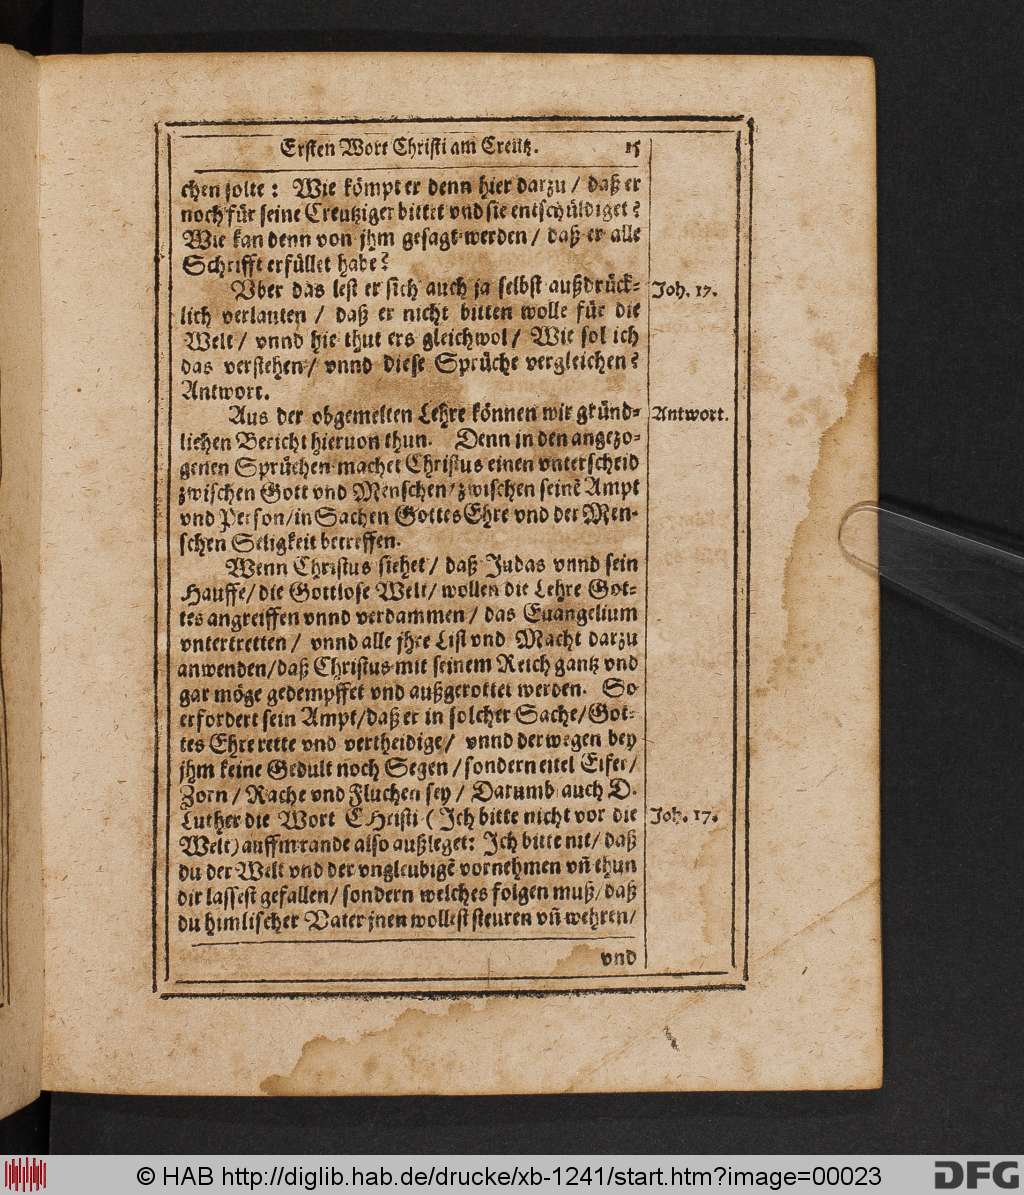 Ersten Wort Christi am Creutz. 15
chen solte: Wie kömpt er denn hier darzu / daß er
noch für seine Creutziger bittet vnd sie entschüldiget?
Wie kan denn von jhm gesagt werden / daß er alle
Schrifft erfüllet habe?
Vber das lest er sich auch ja selbst außdrück-
lich verlauten / daß er nicht bitten wolle für die
Welt / vnnd hie thut ers gleichwol / Wie sol ich
das verstehen / vnnd diese Sprüche vergleichen?
Antwort.
Joh. 17.
Aus der obgemelten Lehre können wir gründ-
lichen Bericht hieruon thun. Denn in den angezo-
genen Sprüchen machet Christus einen vnterscheid
zwischen Gott vnd Menschen / zwischen seinẽ Ampt
vnd Person / in Sachen Gottes Ehre vnd der Men-
schen Seligkeit betreffen.
Antwort.
Wenn Christus siehet / daß Judas vnnd sein
Hauffe / die Gottlose Welt / wollen die Lehre Got-
tes angreiffen vnnd verdammen / das Euangelium
vntertretten / vnnd alle jhre List vnd Macht darzu
anwenden / daß Christus mit seinem Reich gantz vnd
gar möge gedempffet vnd außgerottet werden. So
erfordert sein Ampt / daß er in solcher Sache / Got-
tes Ehre rette vnd vertheidige / vnnd derwegen bey
jhm keine Gedult noch Segen / sondern eitel Eifer /
Zorn / Rache vnd Fluchen sey / Darumb auch D.
Luther die Wort CHristi (Ich bitte nicht vor die
Welt) auffm rande also außleget: Ich bitte nit / daß
du der Welt vnd der vngleubigẽ vornehmen vñ thun
dir lassest gefallen / sondern welches folgen muß / daß
du himlischer Vater jnen wollest steuren vñ wehren /
Joh. 17.
vnd
© HAB http://diglib.hab.de/drucke/xb-1241/start.htm?image=00023
DFG